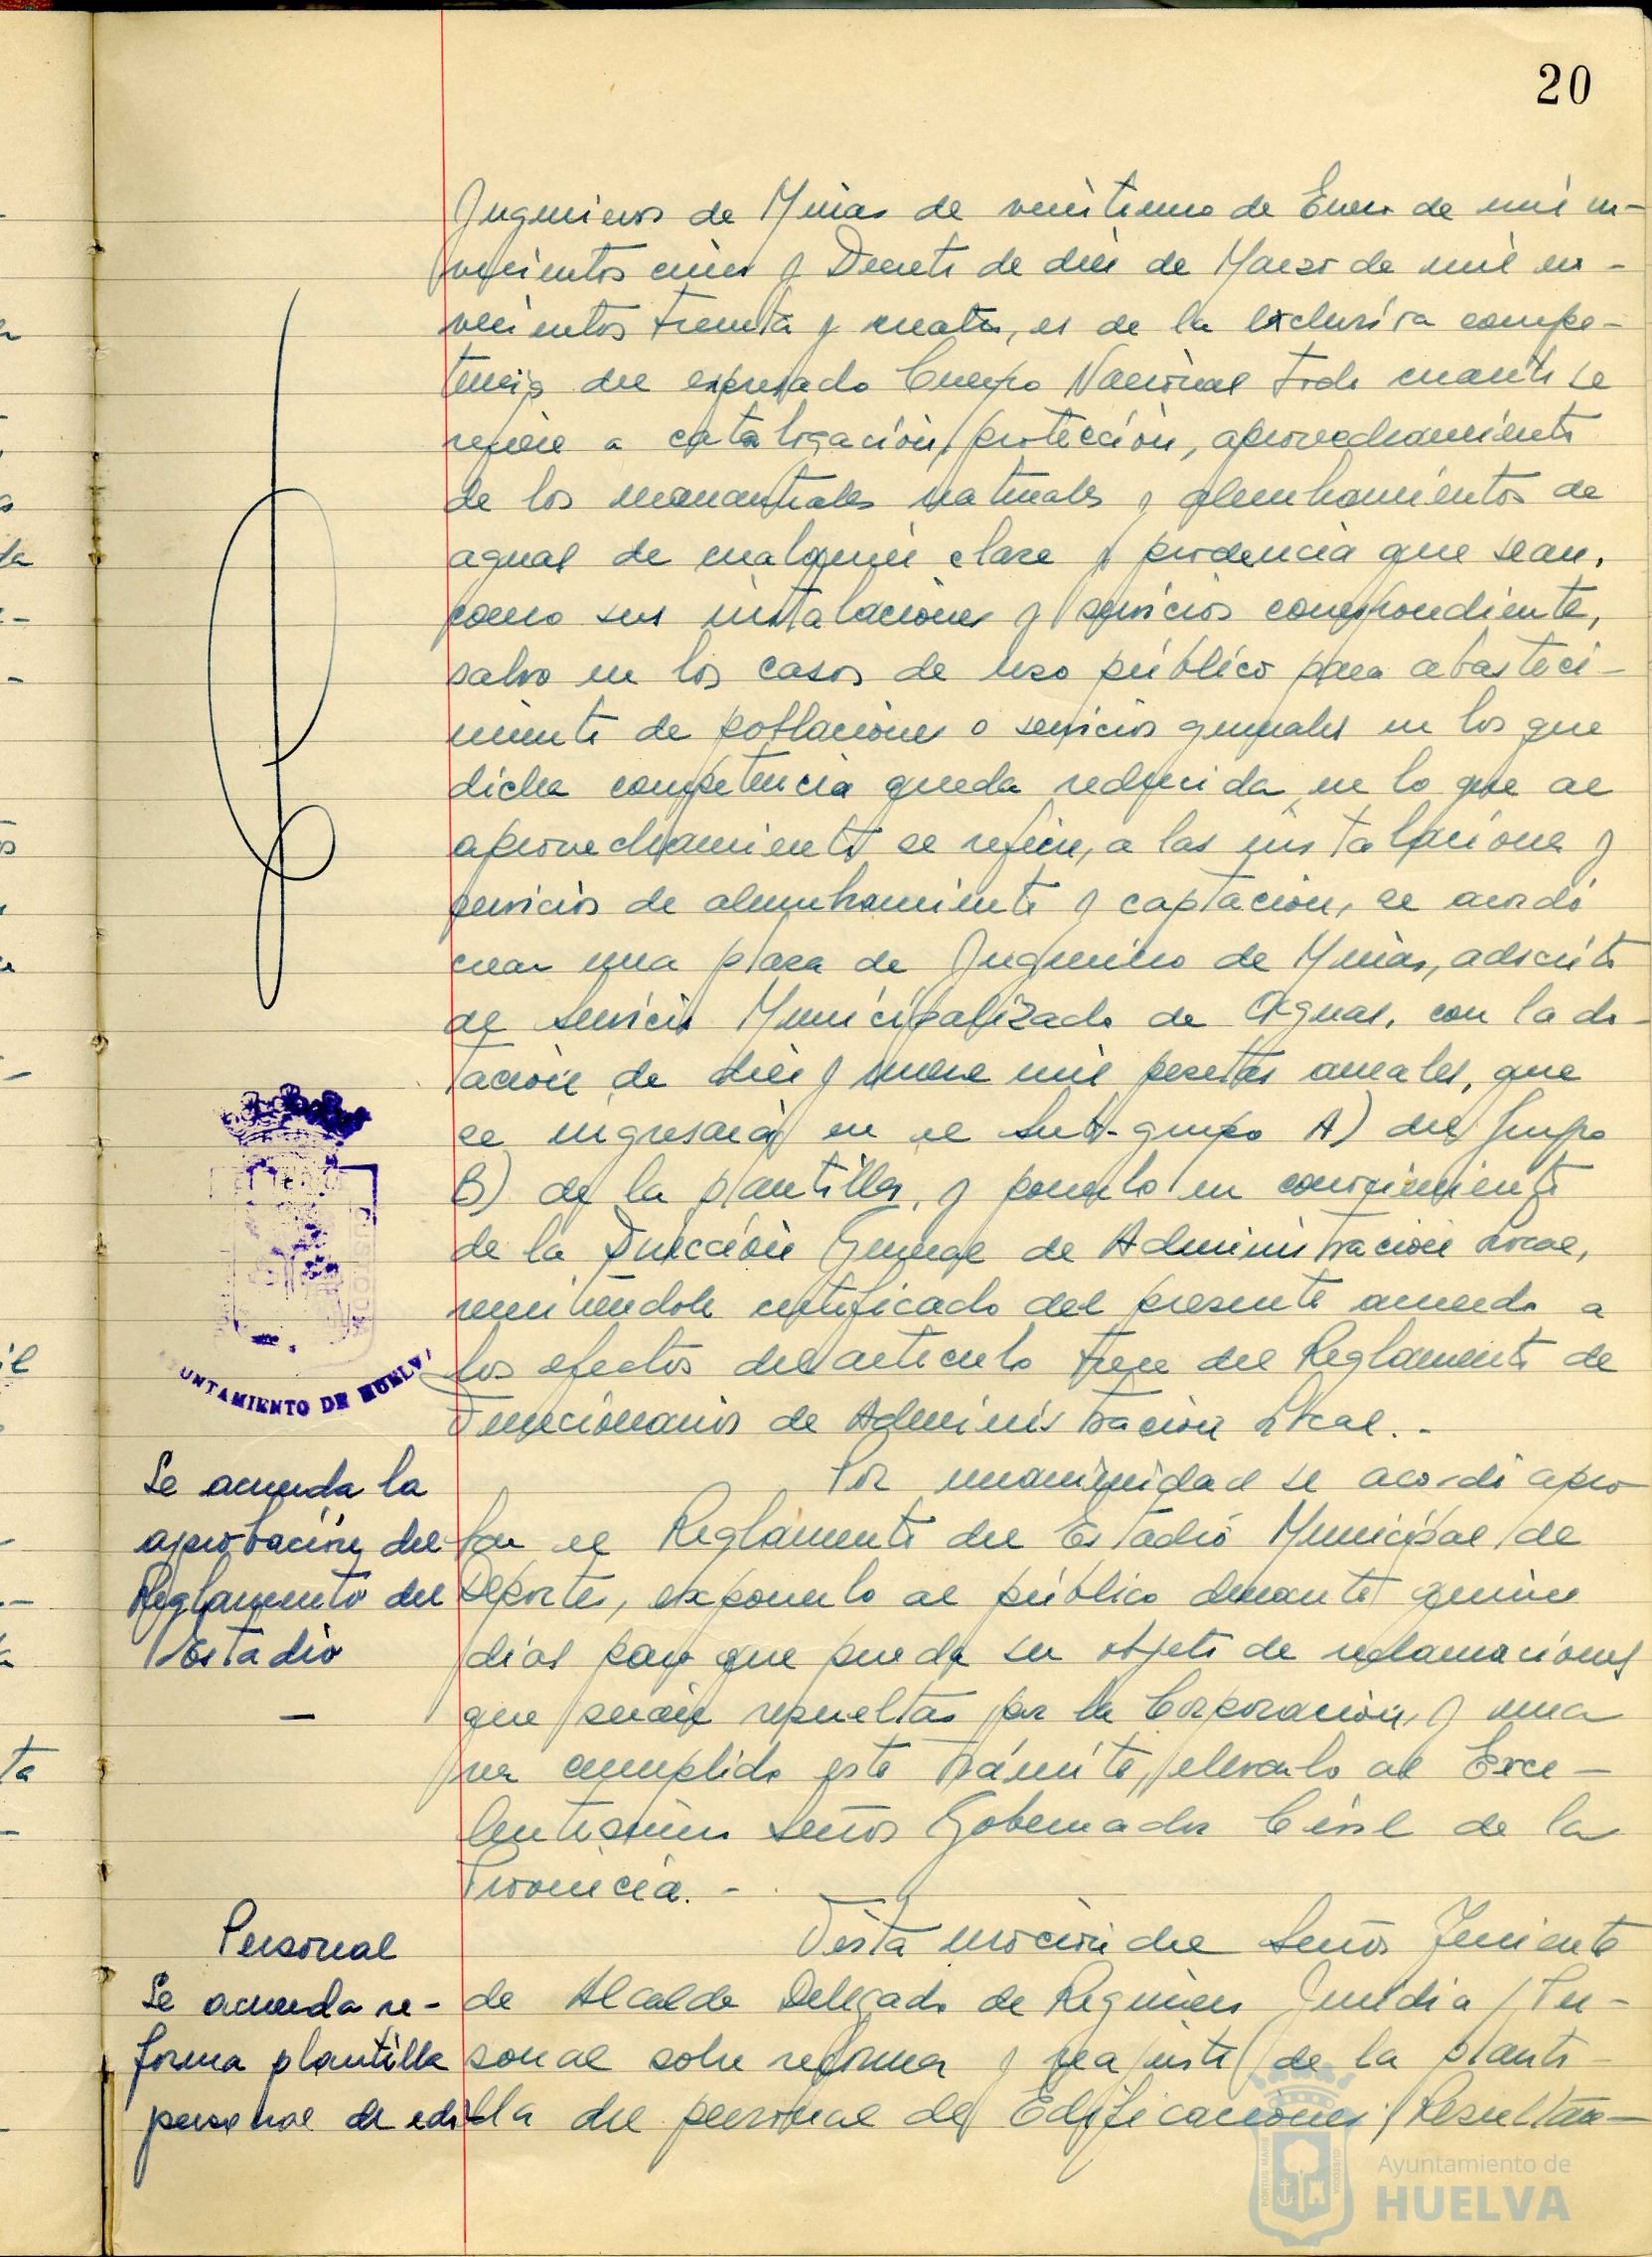 20
Ingenieros de Minas de veintiuno de Enero de mil no-
vecientos cinco y Decreto de diez de Marzo de mil no-
vecientos treinta y cuatro, es de la exclusiva compe-
tencia del expresado Cuerpo Nacional todo cuanto se
refiere a catalogación, protección, aprovechamiento
de los manantiales naturales y alumbramientos de
aguas de cualquier clase y procedencia que sean,
como sus instalaciones y servicios correspondiente,
salvo en los casos de uso público para abasteci-
miento de poblaciones o servicios generales en los que
dicha competencia queda reducida, en lo que al
aprovechamiento se refiere, a las instalaciones y
servicios de alumbramiento y captación, se acordó
crear una plaza de Ingeniero de Minas, adscrito
al Servicio Municipalizado de Aguas, con la do-
tación de diez y nueve mil pesetas anuales, que
se ingresará en el Sub-grupo A) del Grupo
B) de la plantilla, y ponerlo en conocimiento
de la Dirección General de Administración Local,
remitiéndole certificado del presente acuerdo a
los efectos del artículo trece del Reglamento de
Funcionarios de Administración Local.-
AYUNTAMIENTO DE HUELVA
Se acuerda la
aprobación del
Reglamento del
Estadio
Por unanimidad se acordó apro
bar el Reglamento del Estadio Municipal de
Deportes, exponerlo al público durante quince
días para que pueda ser objeto de reclamaciones
que serán resueltas por la Corporación, y una
vez cumplido este trámite, elevarlo al Exce-
lentísimo Señor Gobernador Civil de la
Provincia.-
Personal
Se acuerda re-
forma plantilla
personal de edi
Vista moción del Señor Teniente
de Alcalde Delegado de Régimen Jurídico y Per-
sonal sobre reforma y reajuste de la planti-
lla del personal de Edificaciones; Resultan-
Ayuntamiento de
HUELVA